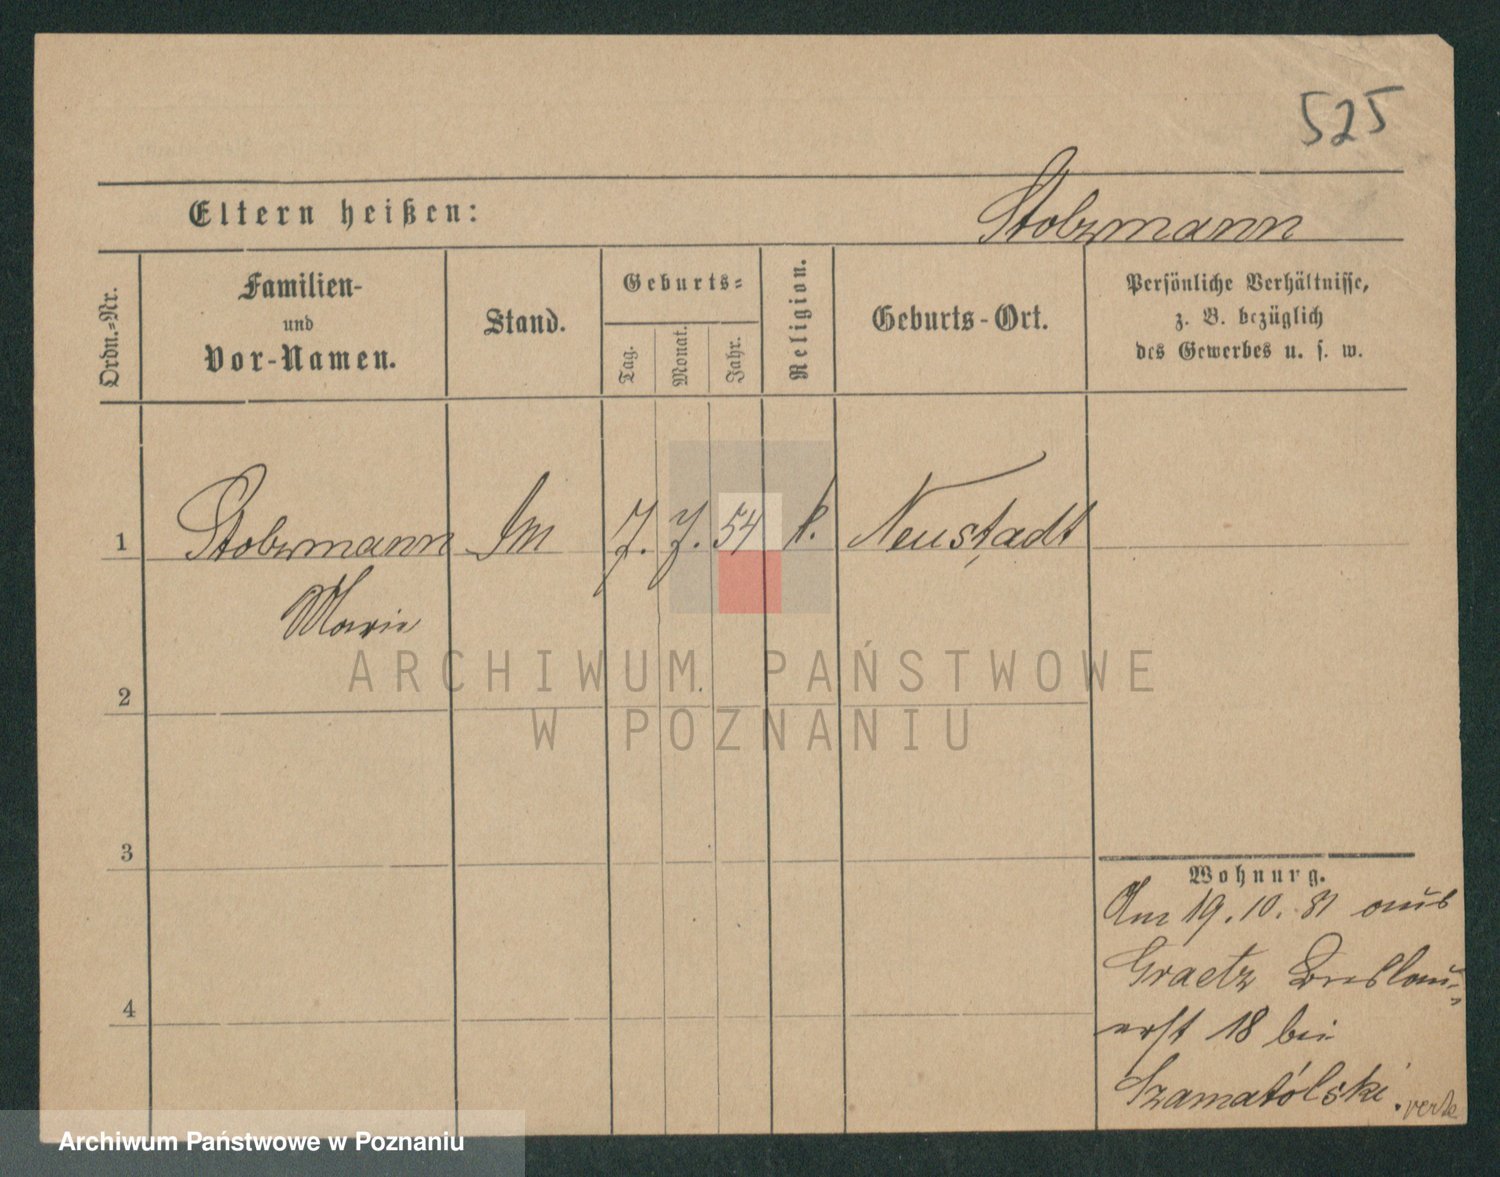 525
Eltern heißen:
Stolzmann
Ordn.-Nr.
Familien-
und
Vor-Namen.
Stand.
Geburts-
Tag.
Monat.
Jahr.
Religion.
Geburts-Ort.
Persönliche Verhältnisse,
z. B. bezüglich
des Gewerbes u. s. w.
1
Stolzmann
7. 7. 54
k.
Neustadt
Marie
ARCHIWUM PAŃSTWOWE
W POZNANIU
2
3
4
Wohnung.
Am 19.10.81 aus
Graetz Breslau-
erst 18 bei
Szamatólski.
Archiwum Państwowe w Poznaniu